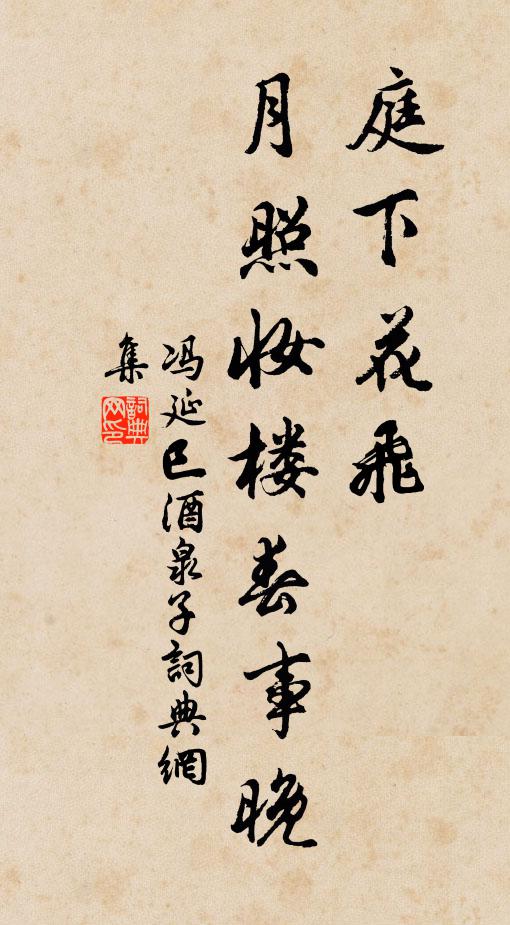 庭下花飛
月照妝楼春事晚
冯延巳酒泉子詞典網
集
詞典网印